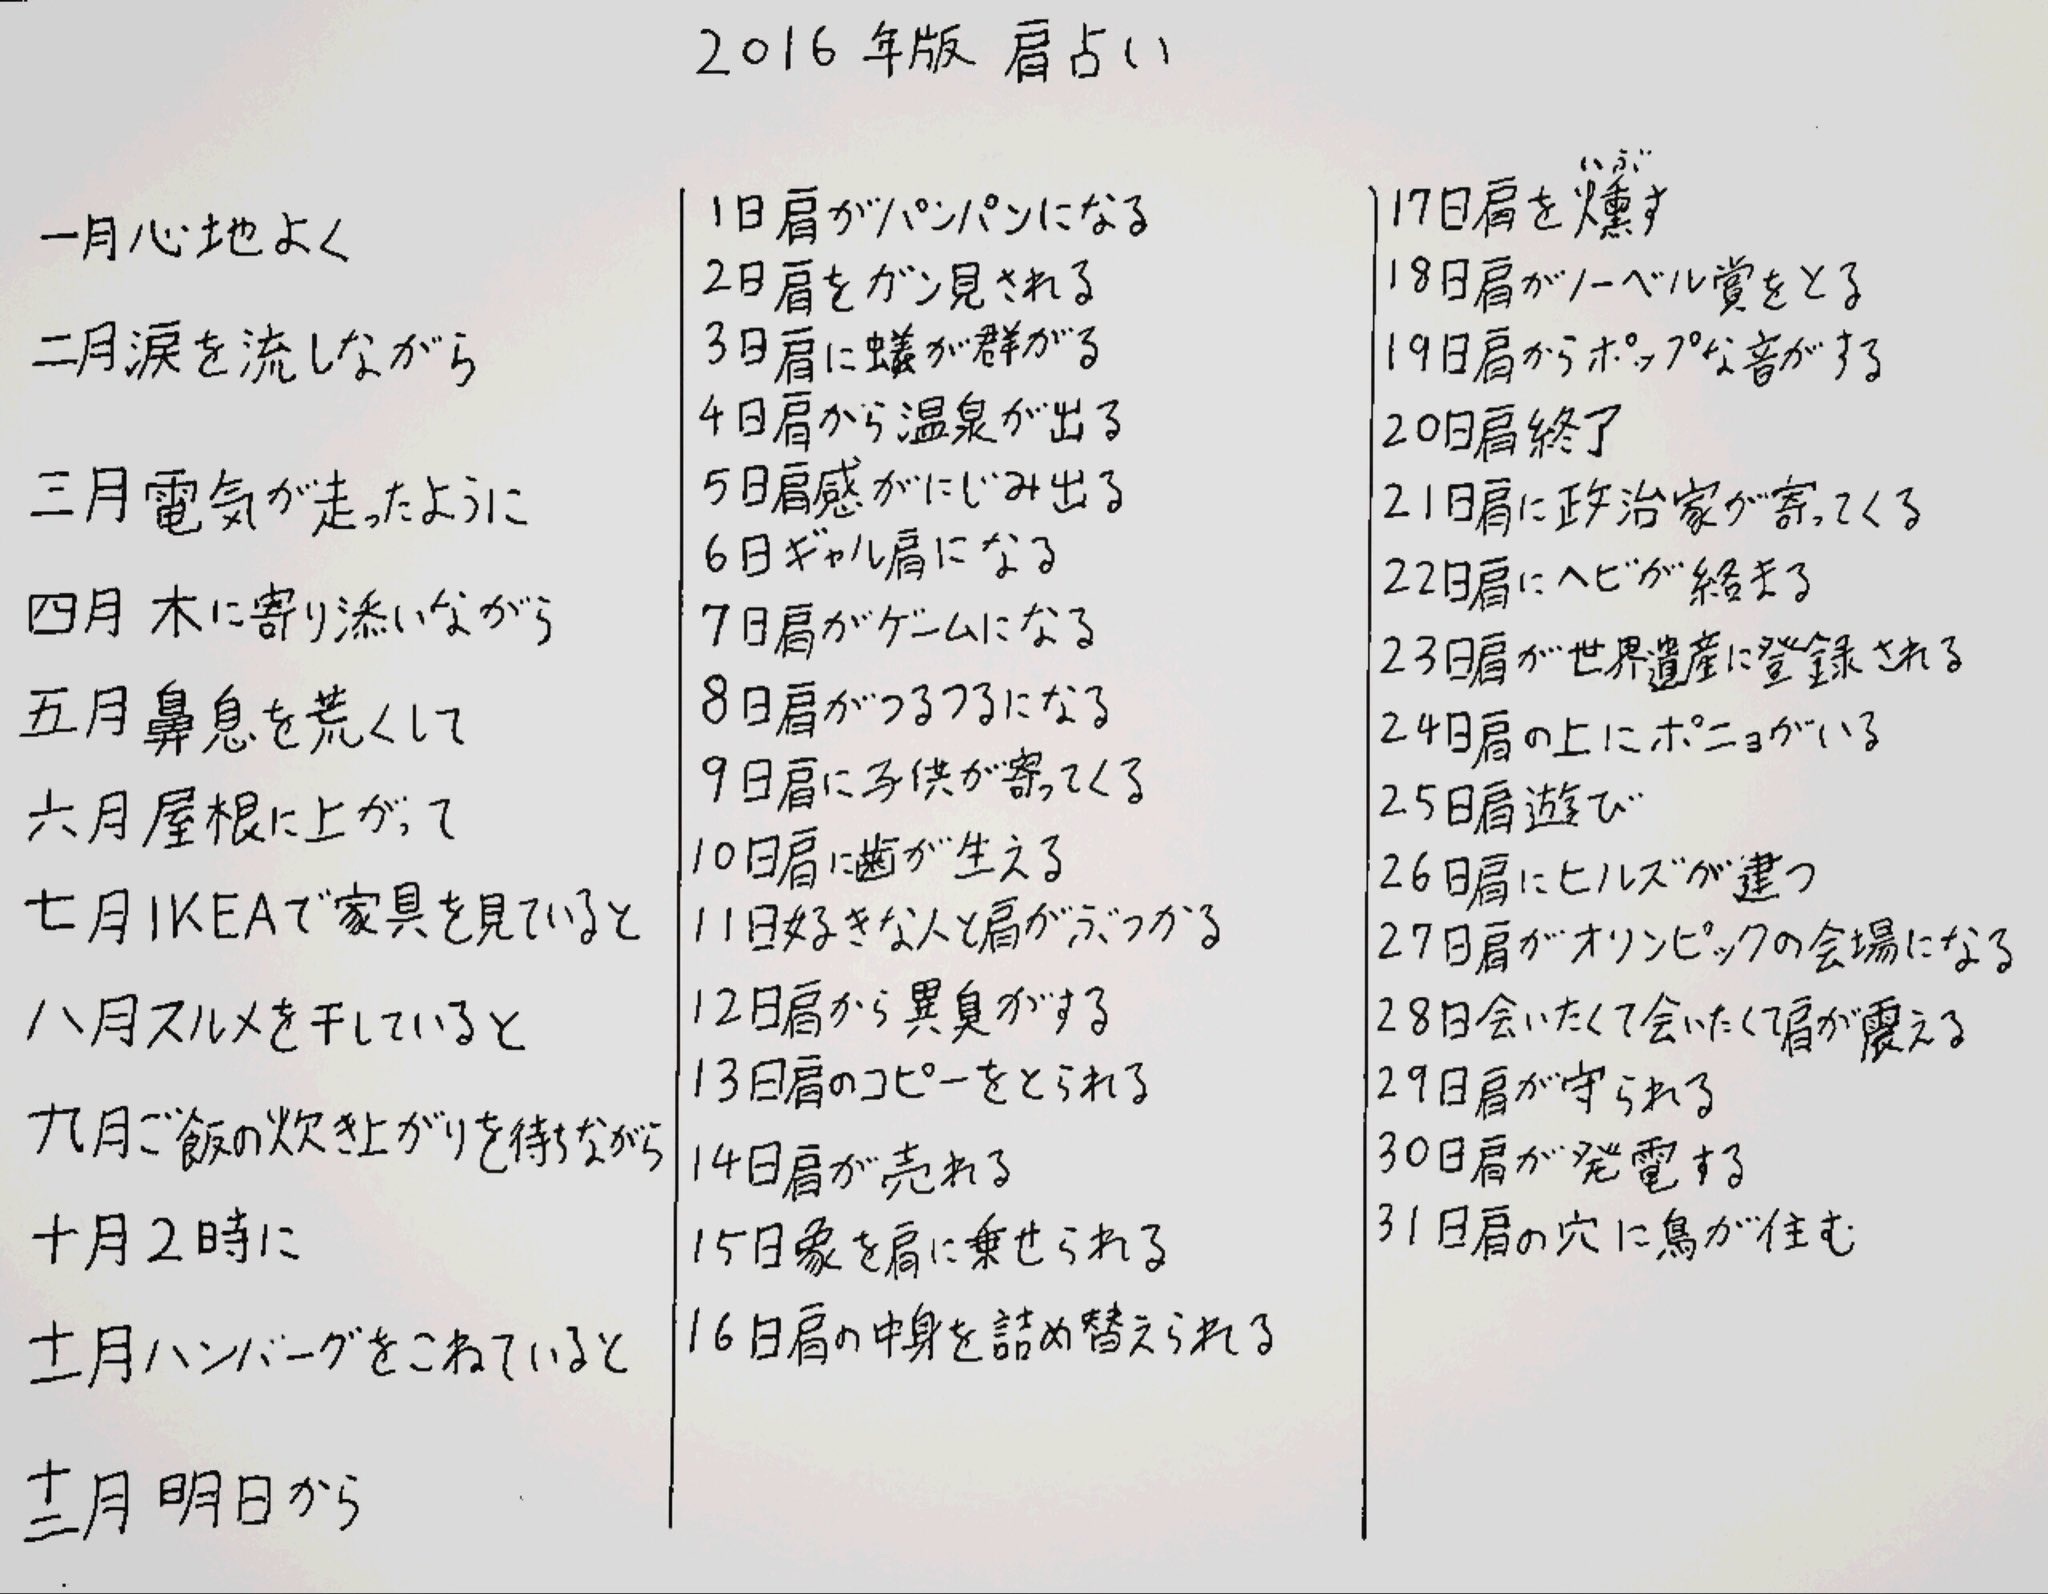 2016年版 肩占い
一月心地よく
二月涙を流しながら
三月電気が走ったように
四月 木に寄り添いながら
五月鼻息を荒くして
六月屋根に上がって
七月IKEAで家具を見ていると
八月スルメを干していると
九月ご飯の炊き上がりを待ちながら
十月2時に
十一月ハンバーグをこねていると
十二月 明日から
1日肩がパンパンになる
2日肩をガン見される
3日肩に蟻が群がる
4日肩から温泉が出る
5日肩感がにじみ出る
6日ギャル肩になる
7日肩がゲームになる
8日肩がつるつるになる
9日肩に子供が寄ってくる
10日肩に歯が生える
11日好きな人と肩がぶつかる
12日肩から異臭がする
13日肩のコピーをとられる
14日肩が売れる
15日象を肩に乗せられる
16日肩の中身を詰め替えられる
いぶ
17日肩を燻す
18日肩がノーベル賞をとる
19日肩からポップな音がする
20日肩終了
21日肩に政治家が寄ってくる
22日肩にヘビが絡まる
23日肩が世界遺産に登録される
24日肩の上にポニョがいる
25日肩遊び
26日肩にヒルズが建つ
27日肩がオリンピックの会場になる
28日会いたくて会いたくて肩が震える
29日肩が守られる
30日肩が発電する
31日肩の穴に鳥が住む